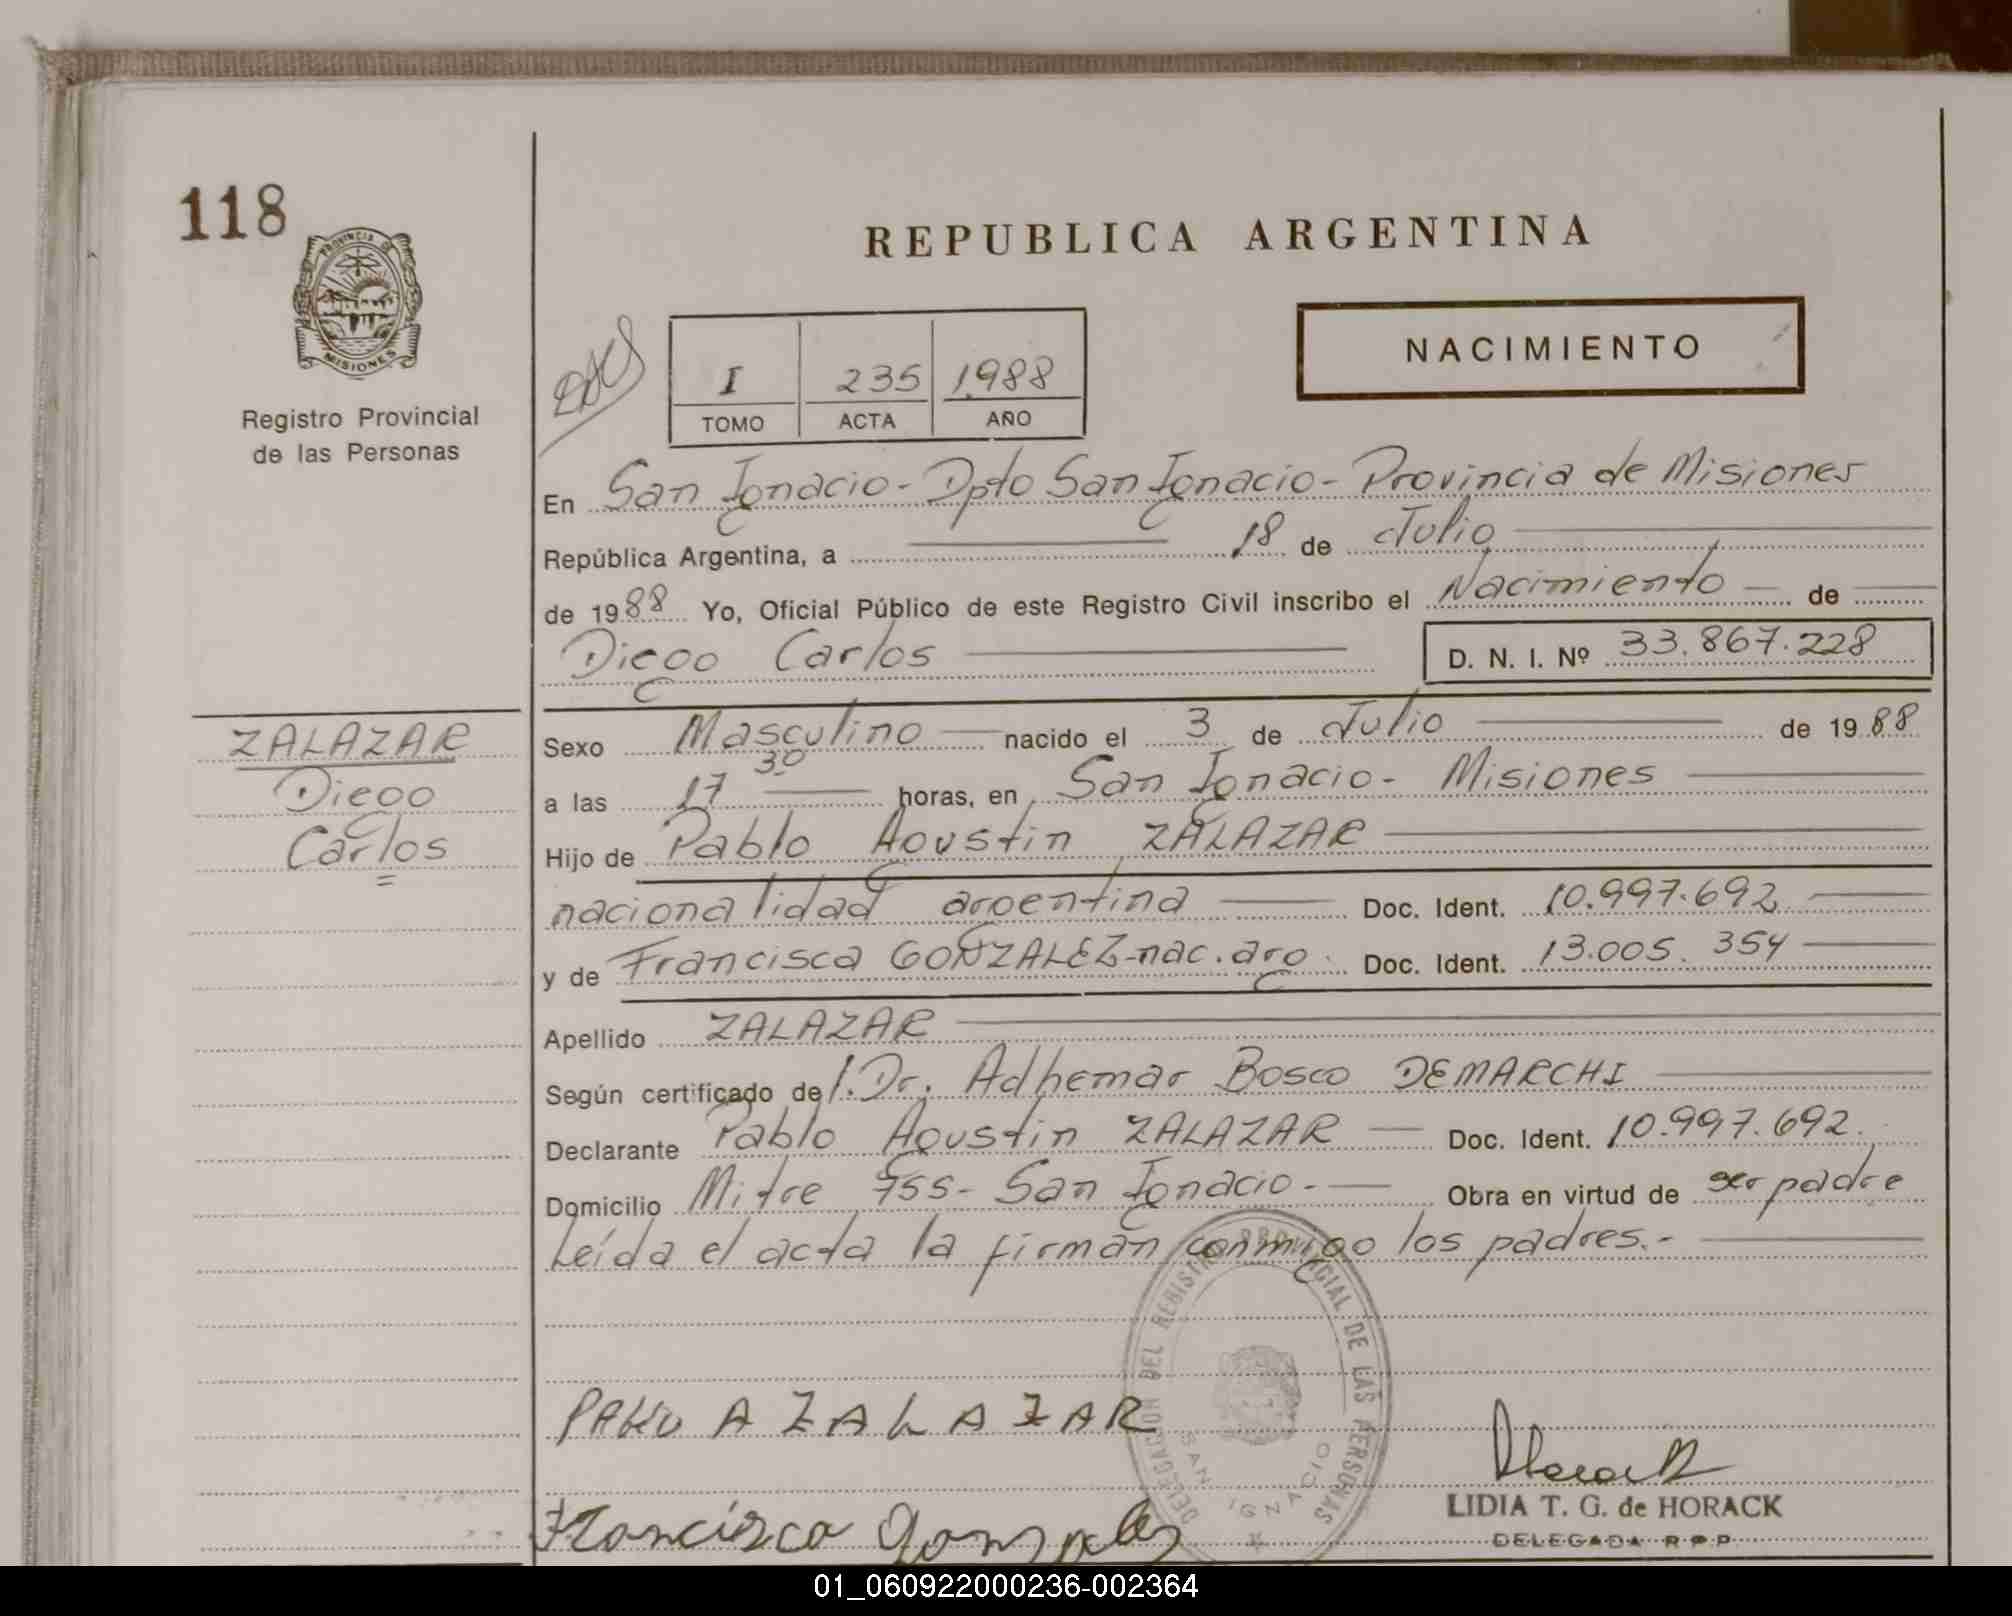 118
PROVINCIA DE
MISIONES
Registro Provincial
de las Personas
REPUBLICA ARGENTINA
NACIMIENTO
I 235 1988
TOMO ACTA AÑO
En San Ignacio - Dpto San Ignacio - Provincia de Misiones
República Argentina, a 18 de Julio
de 1988 Yo, Oficial Público de este Registro Civil inscribo el Nacimiento de
Diego Carlos D. N. I. Nº 33.867.228
ZALAZAR
Diego
Carlos
Sexo Masculino nacido el 3 de Julio de 1988
a las 17 30 horas, en San Ignacio - Misiones
Hijo de Pablo Agustin ZALAZAR
nacionalidad argentina Doc. Ident. 10.997.692
y de Francisca GONZALEZ - nac. arg. Doc. Ident. 13.005.354
Apellido ZALAZAR
Según certificado del. Dr. Adhemar Bosco DEMARCHI
Declarante Pablo Agustin ZALAZAR Doc. Ident. 10.997.692.
Domicilio Mitre 755 - San Ignacio. - Obra en virtud de ser padre
Leída el acta la firman conmigo los padres. -
DELEGACION DEL REGISTRO PROVINCIAL DE LAS PERSONAS
SAN IGNACIO
PABLO A ZALAZAR
Francisca Gonzalez
Horack
LIDIA T. G. de HORACK
DELEGADA R.P.P.
01_060922000236-002364